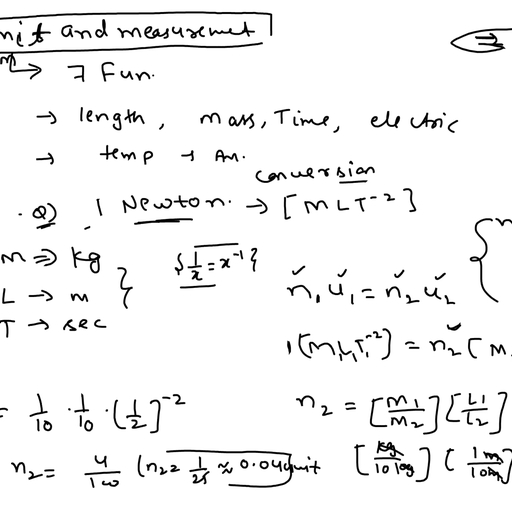 nit and measuremet
→ 7 Fun.
→ length, mass, Time, electric
→ temp → Am.
conversion
Q) 1 Newton. → [MLT⁻²]
M ⇒ kg
L → m
T → sec
{1/x = x⁻¹}
n₁u₁ = n₂u₂
1[M₁L₁T₁⁻²] = n₂[M
= 1/10 · 1/10 · (1/2)⁻²
n₂ = [M₁/M₂][L₁/L₂]
n₂ = 4/100 (n₂ = 1/25 ≈ 0.04 unit